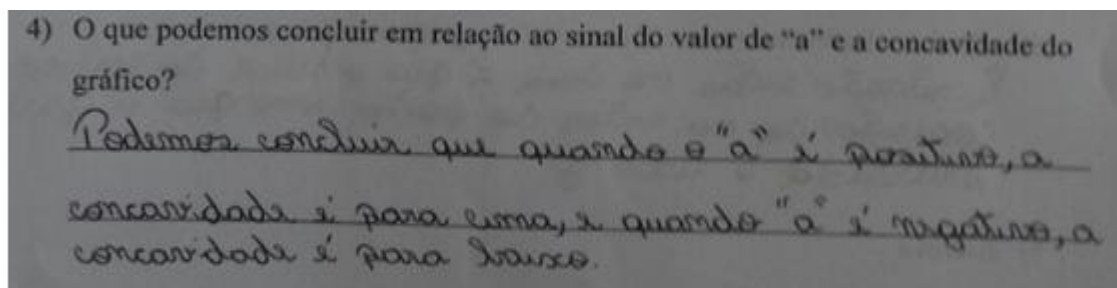 4) O que podemos concluir em relação ao sinal do valor de “a” e a concavidade do
gráfico?
Podemos concluir que quando o "a" é positivo, a
concavidade é para cima, e quando "a" é negativo, a
concavidade é para baixo.